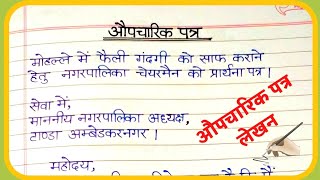 औपचारिक पत्र
मोहल्ले में फैली गंदगी को साफ कराने
हेतु नगरपालिका चेयरमैन को प्रार्थना पत्र।
सेवा में,
माननीय नगरपालिका अध्यक्ष,
टाण्डा अम्बेडकरनगर।
महोदय,
औपचारिक पत्र
लेखन